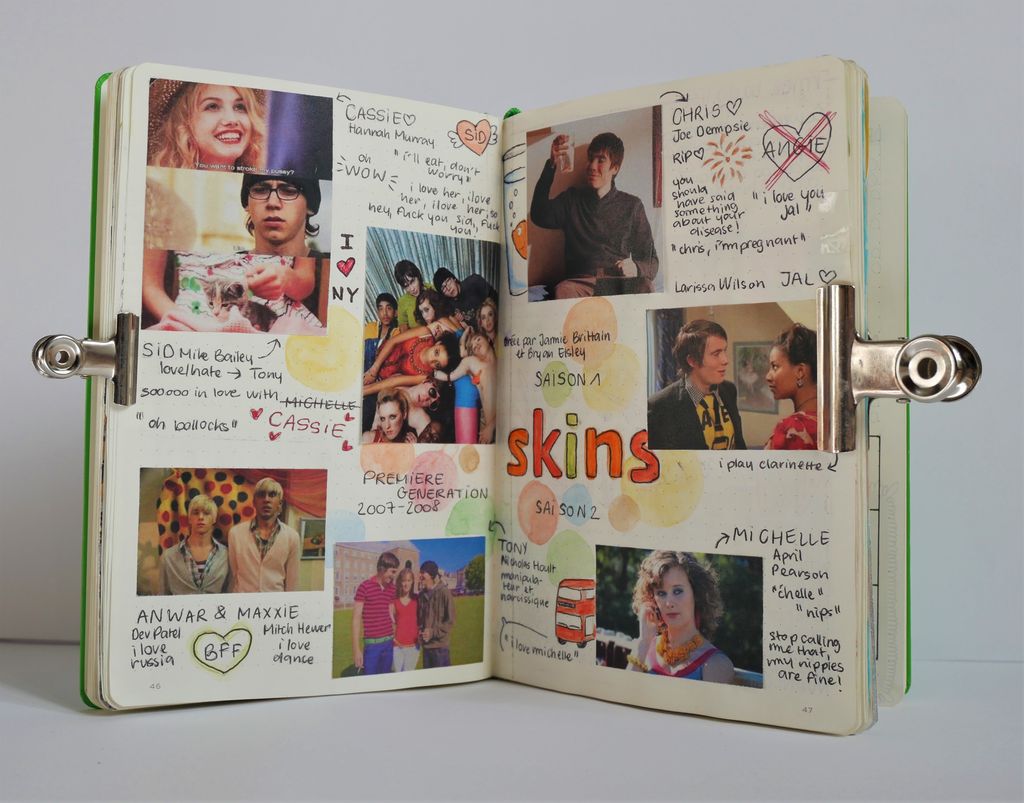 CASSIE♡
Hannah Murray
SID
"i'll eat, don't
worry"
oh
WOW
i love her, i love
her, i love her, so
hey, fuck you sid, fuck
you!
You want to stroke my pussy?
I
♥
NY
SiD Mike Bailey
love/hate → Tony
sooooo in love with MICHELLE
CASSIE
"oh bollocks"
PREMIERE
GENERATION
2007-2008
ANWAR & MAXXIE
Dev Patel
i love
russia
BFF
Mitch Hewer
i love
dance
46
CHRIS ♡
Joe Dempsie
RIP♡
ANGIE
you
should
have said
something
about your
disease!
"i love you
Jal"
"chris, i'm pregnant"
Larissa Wilson JAL ♡
par Jamie Brittain
et Bryan Elsley
SAISON 1
skins
i play clarinette
SAISON 2
TONY
Nicholas Hoult
manipula-
teur et
narcissique
"i love michelle"
MiCHELLE
April
Pearson
"chelle"
"nips"
stop calling
me that,
my nipples
are fine!
47